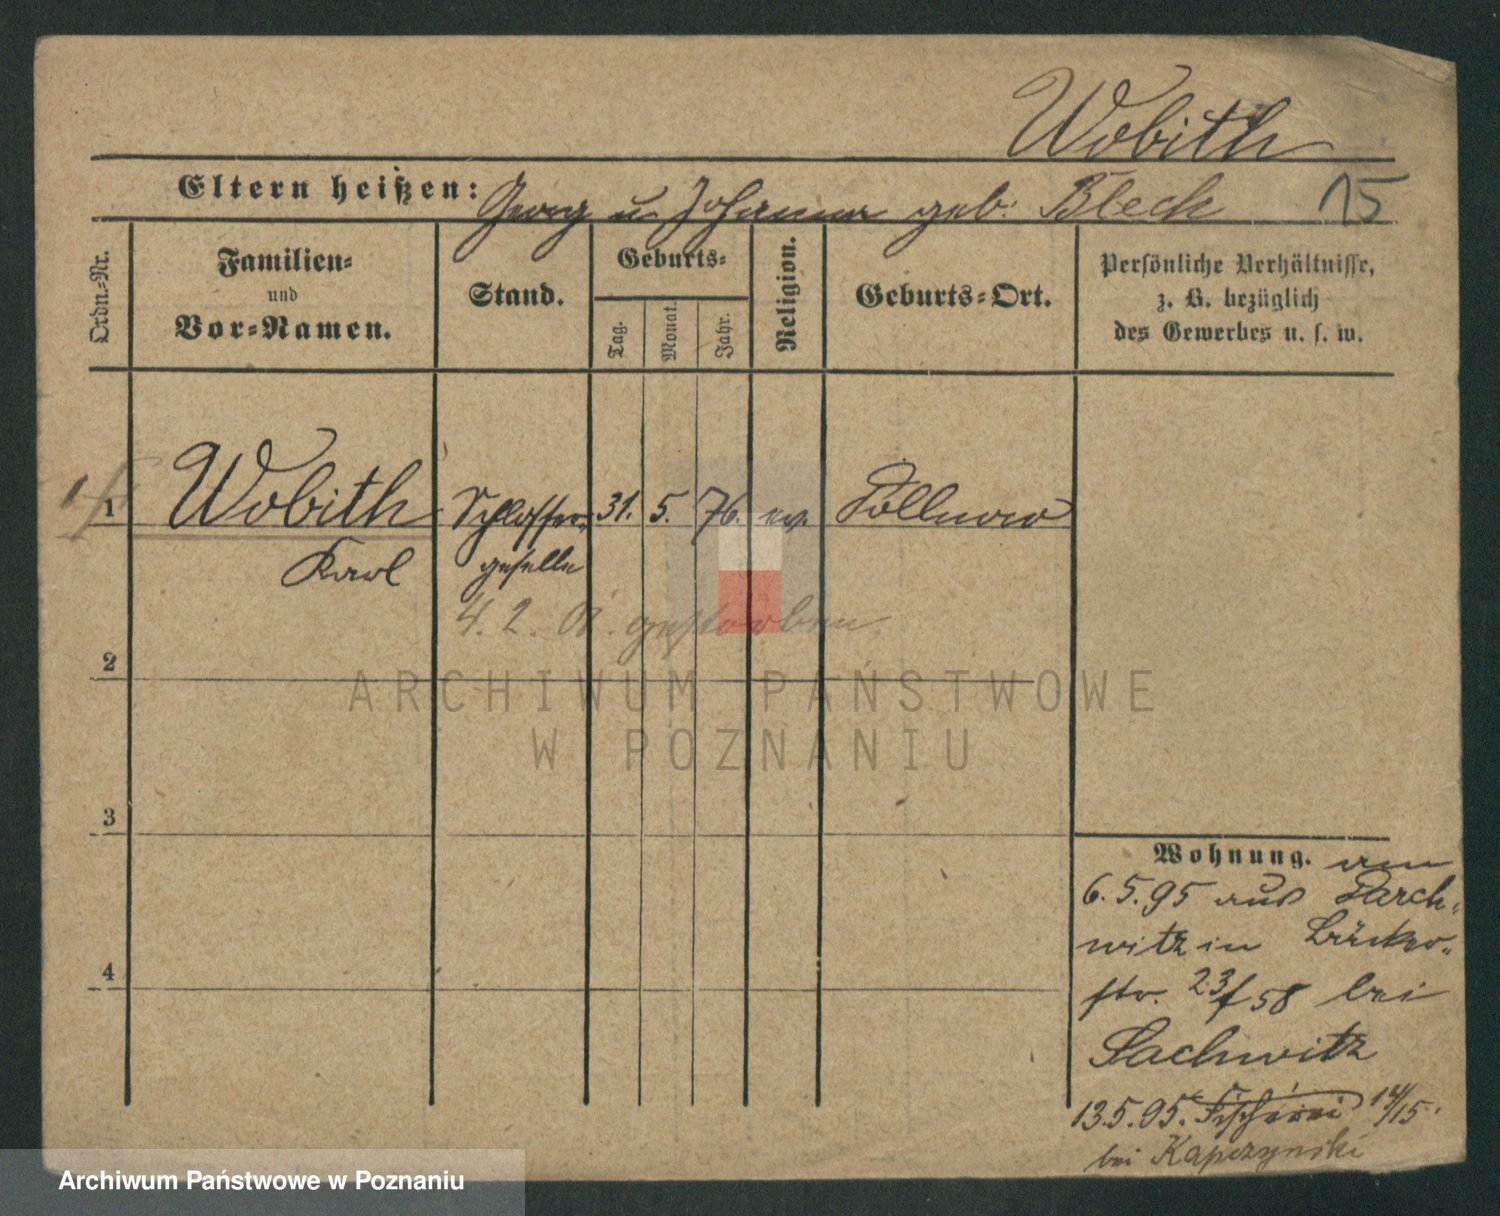 Wobith
Eltern heißen: Georg u Johanna geb. Bleck 15
Ordn.-Nr.
Familien-
und
Vor-Namen.
Stand.
Geburts-
Tag.
Monat.
Jahr.
Religion.
Geburts-Ort.
Persönliche Verhältnisse,
z. B. bezüglich
des Gewerbes u. s. w.
1 Wobith Schlosser- 31. 5. 76. ev. Pollnow
Karl geselle
4. 2. 01. gestorben
2
3
4
Wohnung. am
6.5.95 aus Parch-
witz in
str. 23/58 bei
Sachwitz
13.5.95. Fischerei 14/15.
bei Kapczynski
ARCHIWUM PAŃSTWOWE
W POZNANIU
Archiwum Państwowe w Poznaniu